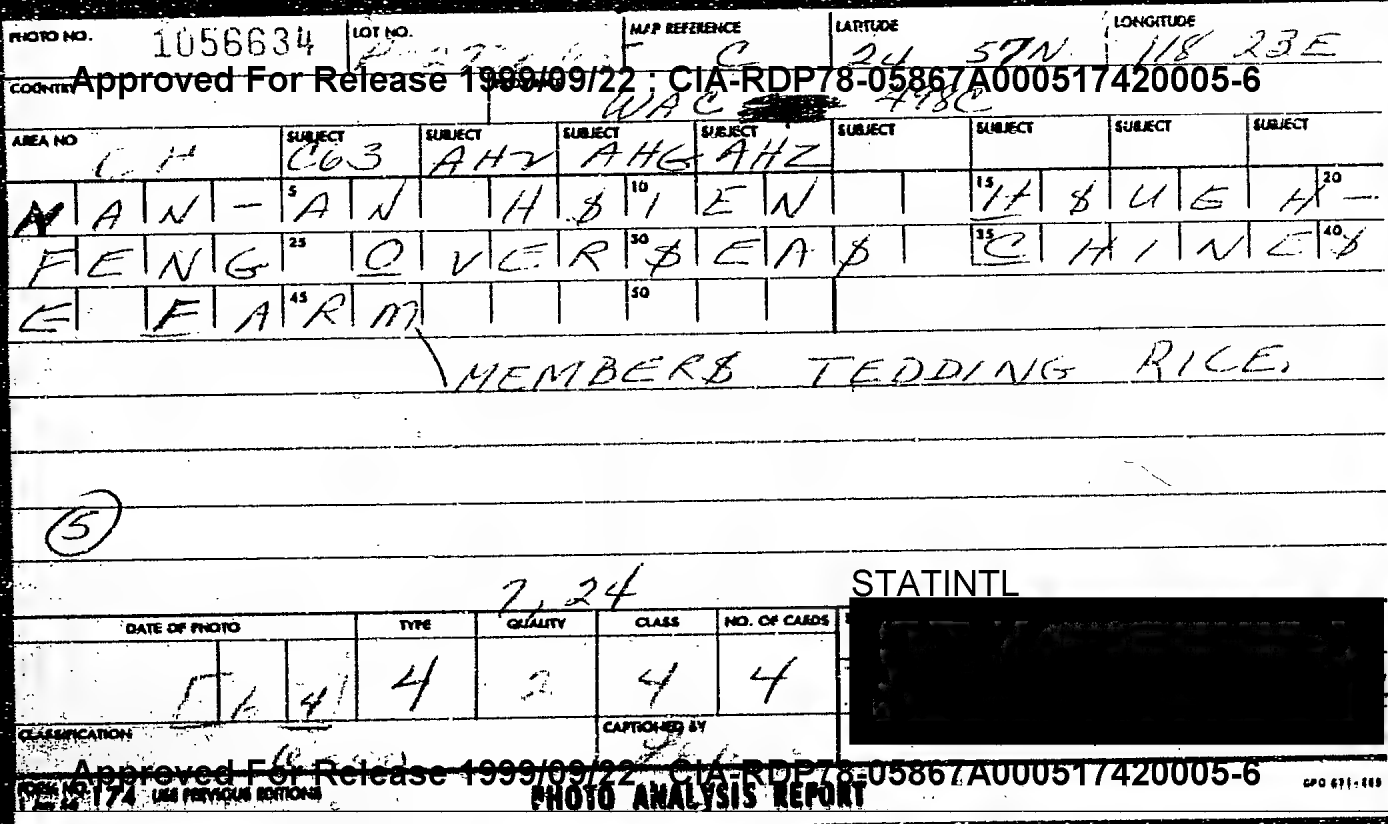 PHOTO NO. 1056634 LOT NO. MAP REFERENCE C LATITUDE 24 57N LONGITUDE 118 23E
Approved For Release 1999/09/22 : CIA-RDP78-05867A000517420005-6
COUNTRY WAC 498C
AREA NO CH SUBJECT C63 SUBJECT AHV SUBJECT AHG SUBJECT AHZ SUBJECT SUBJECT SUBJECT SUBJECT
NAN-5AN H$10IEN 15H$UEH-20
FENG25 OVER30$EA$ 35CHINE40$
E FA45RM 50
MEMBER$ TEDDING RICE.
5
7,24
STATINTL
DATE OF PHOTO TYPE QUALITY CLASS NO. OF CARDS
4 4 2 4 4
CLASSIFICATION CAPTIONED BY
Approved For Release 1999/09/22 : CIA-RDP78-05867A000517420005-6
FORM NO. 174 USE PREVIOUS EDITIONS PHOTO ANALYSIS REPORT GPO